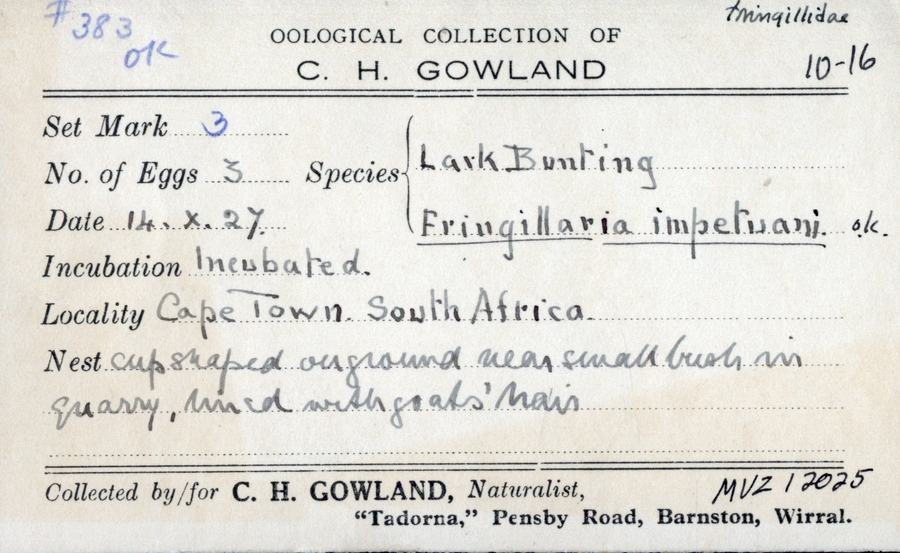 #383
ok
Fringillidae
10-16
OOLOGICAL COLLECTION OF
C. H. GOWLAND
Set Mark 3
No. of Eggs 3
Species Lark Bunting
Date 14. X. 27.
Fringillaria impetuani. o.k.
Incubation Incubated.
Locality Cape Town. South Africa.
Nest cup shaped on ground near small bush in
quarry, lined with goats' hair
Collected by/for C. H. GOWLAND, Naturalist,
MVZ 12025
"Tadorna," Pensby Road, Barnston, Wirral.